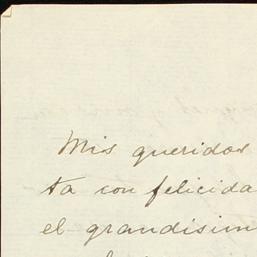 Mis queridos
ta con felicida
el grandisim